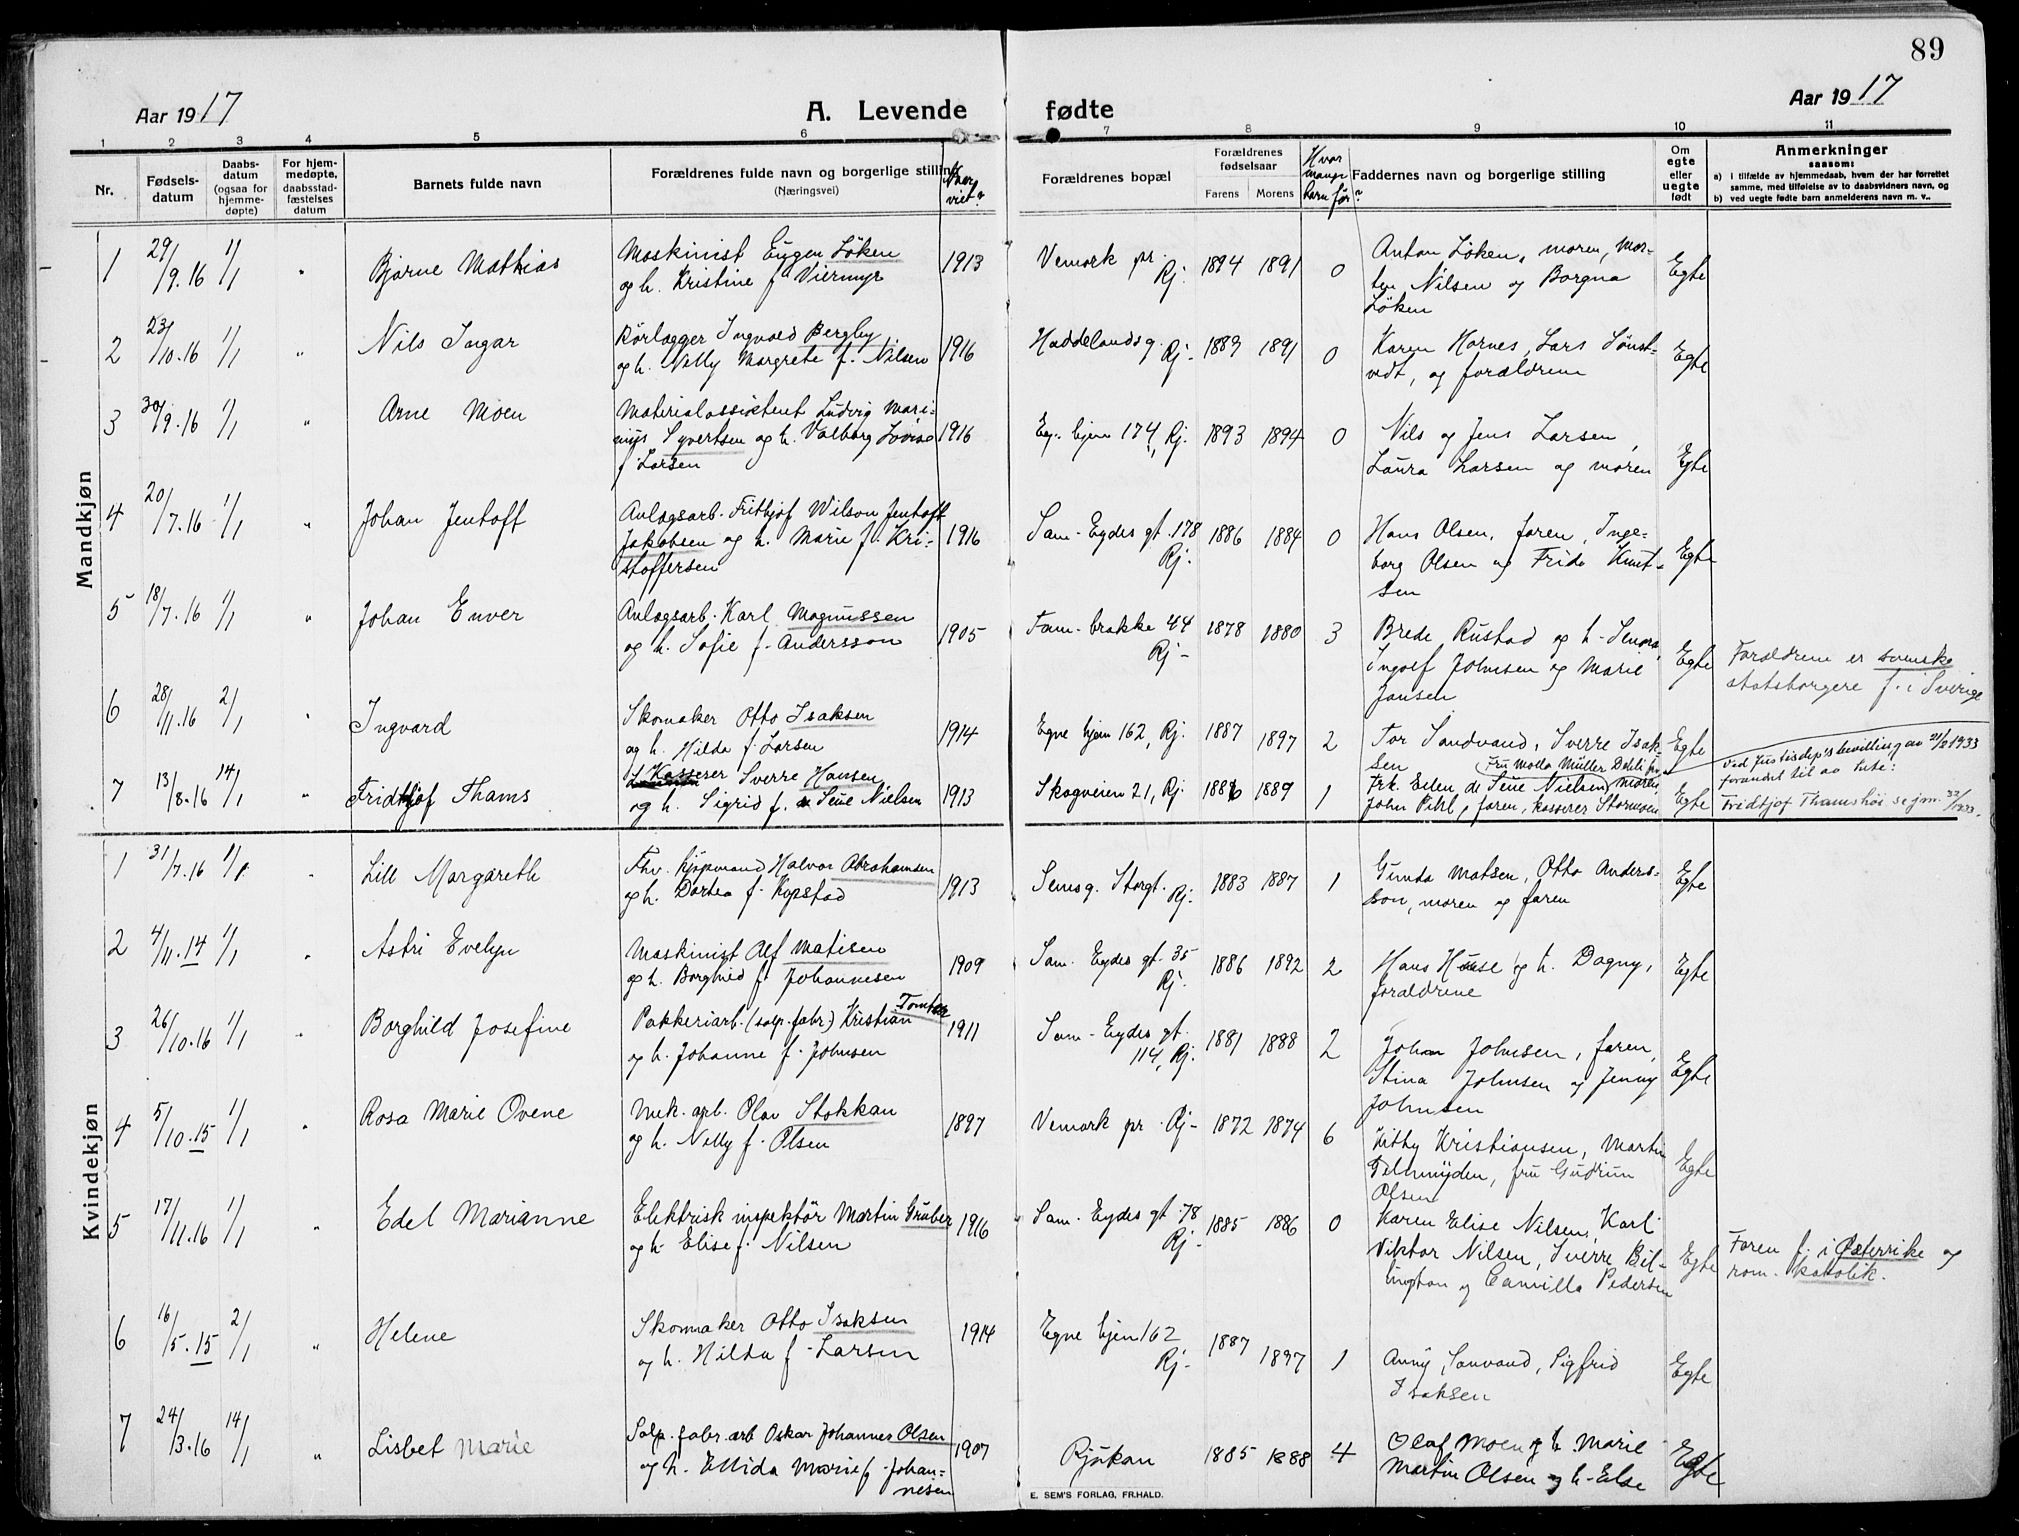 89
Aar 1917
A. Levende fødte
Aar 1917
1 2 3 4 5 6 7 8 9 10 11
Nr.
Fødsels-
datum
Daabs-
datum
(ogsaa for
hjemme-
døpte)
For hjem-
medøpte,
daabsstad-
fæstelses
datum
Barnets fulde navn
Forældrenes fulde navn og borgerlige stilling
(Næringsvei)
Naar
viet?
Forældrenes bopæl
Forældrenes
fødselsaar
Farens Morens
Hvor
mange
barn før?
Faddernes navn og borgerlige stilling
Om
egte
eller
uegte
født
Anmerkninger
saasom:
a) i tilfælde av hjemmedaab, hvem der har forrettet
samme, med tilføielse av to daabsvidners navn, og
b) ved uegte fødte barn anmelderens navn m. v..
Mandkjøn
1 29/9.16 1/1 " Bjarne Mathias Maskinist Eugen Løken 1913 Vemork pr. Rj. 1894 1891 0 Anton Løken, moren, Mor- Egte
og h. Kristine f. Viermyr ten Nilsen og Borgna
Løken
2 23/10.16 1/1 " Nils Ingar Rørlægger Ingvald Bergby 1916 Haddelandsg. Rj. 1889 1891 0 Karen Hornes, Lars Sønst- Egte
og h. Nelly Margrete f. Nilsen vedt, og forældrene
3 30/9.16 1/1 " Arne Moen Materialassistent Ludvig Mari- 1916 Eg. hjem 174, Rj. 1893 1894 0 Nils og Jens Larsen, Egte
nius Syvertsen og h. Valborg Lovise Laura Larsen og moren
f. Larsen
4 20/7.16 1/1 " Johan Jentoft Anlægsarb. Frithjof Wilson Jentoft 1916 Sam. Eydes gt. 178 Rj. 1886 1884 0 Hans Olsen, faren, Inge- Egte
Jakobsen og h. Marie f. Kri- borg Olsen og Frida Knut-
stoffersen sen
5 18/7.16 1/1 " Johan Enver Anlægsarb. Karl Magnussen 1905 Fam. brakke 44 Rj. 1878 1880 3 Brede Rustad og h. Senora, Egte Forældrene er svenske
og h. Sofie f. Andersson Ingolf Johnsen og Marie statsborgere f. i Sverige
Jansen
6 28/11.16 2/1 " Ingvard Skomaker Otto Isaksen 1914 Egne hjem 162, Rj. 1887 1897 2 Tor Sandvand, Sverre Isak- Egte
og h. Hilda f. Larsen sen
7 13/8.16 14/1 " Fridtjof Thams Kasserer Sverre Hansen 1913 Skogveien 21, Rj. 1886 1889 1 Fru Molla Müller Dehli for Egte Ved Justisdep's bevilling av 21/2 1933
og h. Sigrid f. Seue Nielsen Frk. Ellen de Seue Nielsen, moren, forandret til av Pute:
John Pihl, faren, kasserer Stormoen Fridtjof Thamshøi se jnr. 32/1933.
Kvindekjøn
1 31/7.16 1/1 " Lill Margareth Fhv. kjøpmand Halvor Abrahamsen 1913 Semsg. Storgt. Rj. 1883 1887 1 Gunda Matsen, Otto Anders- Egte
og h. Dortea f. Kopstad son, moren og faren
2 4/11.14 1/1 " Astri Evelyn Maskinist Alf Matisen 1909 Sam. Eydes gt. 35 Rj. 1886 1892 2 Hans Huse og h. Dagny, Egte
og h. Borghild f. Johannesen forældrene
3 26/10.16 1/1 " Borghild Josefine Pakkeriarb. (salp. fabr.) Kristian Tomter 1911 Sam. Eydes gt. 114, Rj. 1881 1888 2 Johan Johnsen, faren, Egte
og h. Johanne f. Johnsen Stina Johnsen og Jenny
Johnsen
4 5/10.15 1/1 " Rosa Marie Ovene Mek. arb. Olav Stokkan 1897 Vemork pr. Rj. 1872 1874 6 Kitty Kristiansen, Martin Egte
og h. Nelly f. Olsen Felhnyden, fru Gudrun
Olsen
5 17/11.16 1/1 " Edel Marianne Elektrisk inspektør Martin Gruber 1916 Sam. Eydes gt. 78 Rj. 1885 1886 0 Karen Elise Nilsen, Karl Egte Faren f. i Østerrike og
og h. Elise f. Nilsen Viktor Nilsen, Sverre Bil- rom. katolik.
lington og Camilla Pedersen
6 16/5.15 2/1 " Helene Skomaker Otto Isaksen 1914 Egne hjem 162 Rj. 1887 1897 1 Anny Sanvand, Sigfrid Egte
og h. Hilda f. Larsen Isaksen
7 24/3.16 14/1 " Lisbet Marie Salp. fabr. arb Oskar Johannes Olsen 1907 Rjukan 1885 1888 4 Olaf Moen og h. Marie Egte
og h. Ellida Marie f. Johan- Martin Olsen og h. Else
nesen
E. SEM'S FORLAG, FR.HALD.